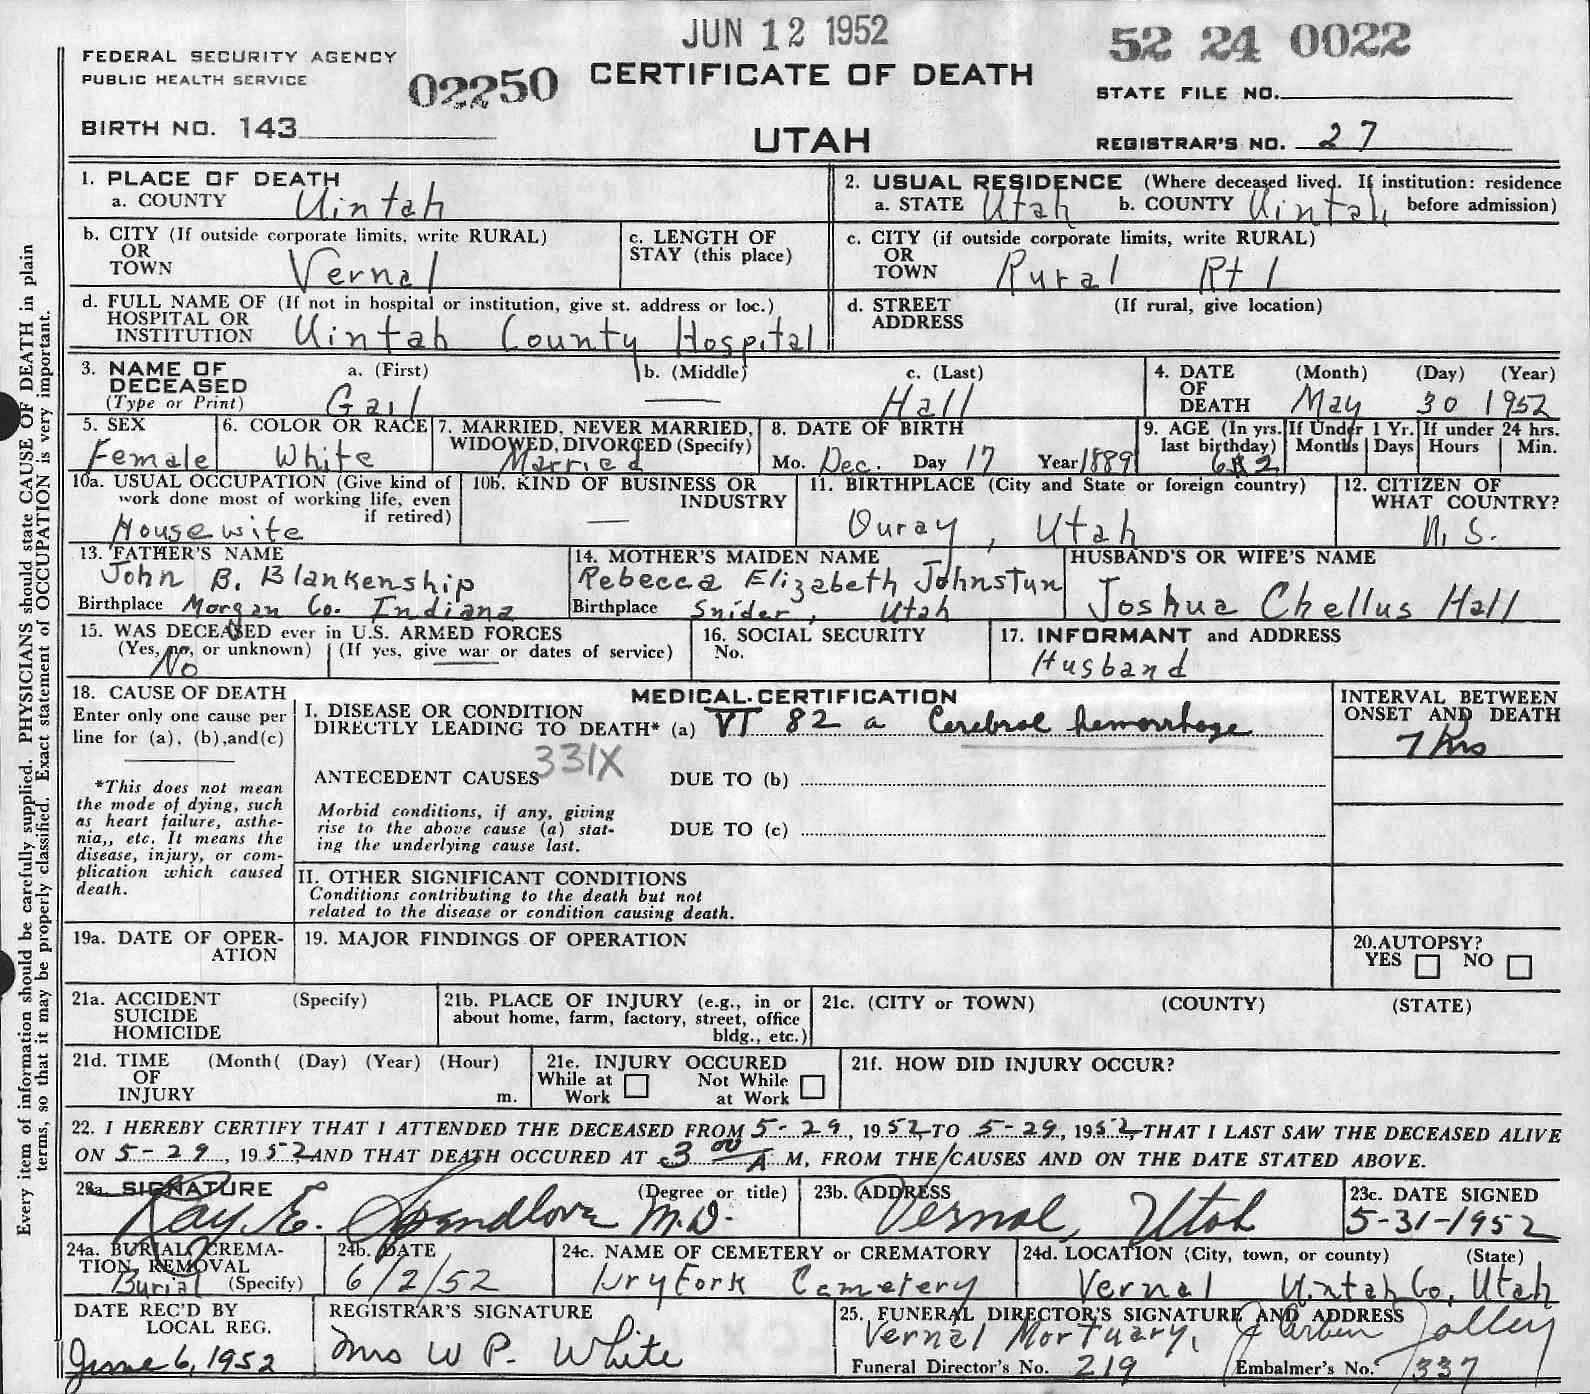 JUN 12 1952
52 24 0022
FEDERAL SECURITY AGENCY
PUBLIC HEALTH SERVICE
02250
CERTIFICATE OF DEATH
STATE FILE NO.
BIRTH NO. 143
UTAH
REGISTRAR'S NO. 27
Every item of information should be carefully supplied. PHYSICIANS should state CAUSE OF DEATH in plain
terms, so that it may be properly classified. Exact statement of OCCUPATION is very important.
1. PLACE OF DEATH
a. COUNTY Uintah
2. USUAL RESIDENCE (Where deceased lived. If institution: residence
a. STATE Utah b. COUNTY Uintah before admission)
b. CITY (If outside corporate limits, write RURAL)
OR
TOWN Vernal
c. LENGTH OF
STAY (this place)
c. CITY (if outside corporate limits, write RURAL)
OR
TOWN Rural Rt 1
d. FULL NAME OF (If not in hospital or institution, give st. address or loc.)
HOSPITAL OR
INSTITUTION Uintah County Hospital
d. STREET (If rural, give location)
ADDRESS
3. NAME OF a. (First) b. (Middle) c. (Last)
DECEASED
(Type or Print) Gail — Hall
4. DATE (Month) (Day) (Year)
OF
DEATH May 30 1952
5. SEX
Female
6. COLOR OR RACE
White
7. MARRIED, NEVER MARRIED,
WIDOWED, DIVORCED (Specify)
Married
8. DATE OF BIRTH
Mo. Dec. Day 17 Year 1889
9. AGE (In yrs. If Under 1 Yr. If under 24 hrs.
last birthday) Months Days Hours Min.
62
10a. USUAL OCCUPATION (Give kind of
work done most of working life, even
if retired)
Housewife
10b. KIND OF BUSINESS OR
INDUSTRY
—
11. BIRTHPLACE (City and State or foreign country)
Ouray, Utah
12. CITIZEN OF
WHAT COUNTRY?
U. S.
13. FATHER'S NAME
John B. Blankenship
Birthplace Morgan Co. Indiana
14. MOTHER'S MAIDEN NAME
Rebecca Elizabeth Johnstun
Birthplace Snider, Utah
HUSBAND'S OR WIFE'S NAME
Joshua Chellus Hall
15. WAS DECEASED ever in U.S. ARMED FORCES
(Yes, no, or unknown) (If yes, give war or dates of service)
No —
16. SOCIAL SECURITY
No.
17. INFORMANT and ADDRESS
Husband
18. CAUSE OF DEATH
Enter only one cause per
line for (a), (b), and (c)
*This does not mean
the mode of dying, such
as heart failure, asthe-
nia,, etc. It means the
disease, injury, or com-
plication which caused
death.
MEDICAL CERTIFICATION
I. DISEASE OR CONDITION
DIRECTLY LEADING TO DEATH* (a) VI 82 a Cerebral hemorrhage
331X
ANTECEDENT CAUSES DUE TO (b)
Morbid conditions, if any, giving
rise to the above cause (a) stat-
ing the underlying cause last.
DUE TO (c)
II. OTHER SIGNIFICANT CONDITIONS
Conditions contributing to the death but not
related to the disease or condition causing death.
INTERVAL BETWEEN
ONSET AND DEATH
7 hrs
19a. DATE OF OPER-
ATION
19. MAJOR FINDINGS OF OPERATION
20. AUTOPSY?
YES NO
21a. ACCIDENT (Specify)
SUICIDE
HOMICIDE
21b. PLACE OF INJURY (e.g., in or
about home, farm, factory, street, office
bldg., etc.)
21c. (CITY or TOWN) (COUNTY) (STATE)
21d. TIME (Month( (Day) (Year) (Hour)
OF
INJURY m.
21e. INJURY OCCURED
While at Not While
Work at Work
21f. HOW DID INJURY OCCUR?
22. I HEREBY CERTIFY THAT I ATTENDED THE DECEASED FROM 5-29, 1952, TO 5-29, 1952, THAT I LAST SAW THE DECEASED ALIVE
ON 5-29, 1952 AND THAT DEATH OCCURED AT 3 00 A M, FROM THE CAUSES AND ON THE DATE STATED ABOVE.
23a. SIGNATURE (Degree or title)
Ray E. Spendlove M.D.
23b. ADDRESS
Vernal, Utah
23c. DATE SIGNED
5-31-1952
24a. BURIAL, CREMA-
TION, REMOVAL
Burial (Specify)
24b. DATE
6/2/52
24c. NAME OF CEMETERY or CREMATORY
Dry Fork Cemetery
24d. LOCATION (City, town, or county) (State)
Vernal Uintah Co, Utah
DATE REC'D BY
LOCAL REG.
June 6, 1952
REGISTRAR'S SIGNATURE
Mrs W P. White
25. FUNERAL DIRECTOR'S SIGNATURE AND ADDRESS
Vernal Mortuary, Jolley
Funeral Director's No. 219 Embalmer's No. 337